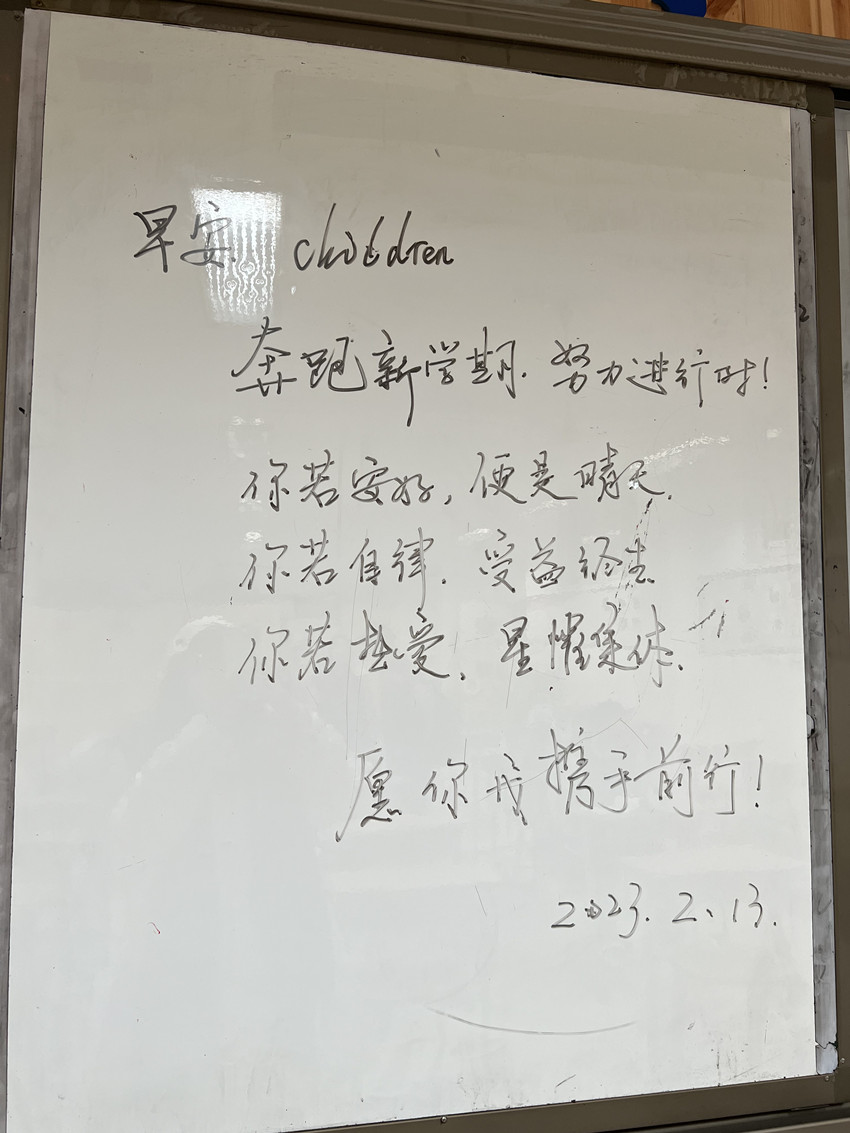 早安 children
奔跑新学期. 努力进行时!
你若安好, 便是晴天.
你若自律. 受益终生
你若热爱. 星耀集体.
愿你我携手前行!
2023.2.13.